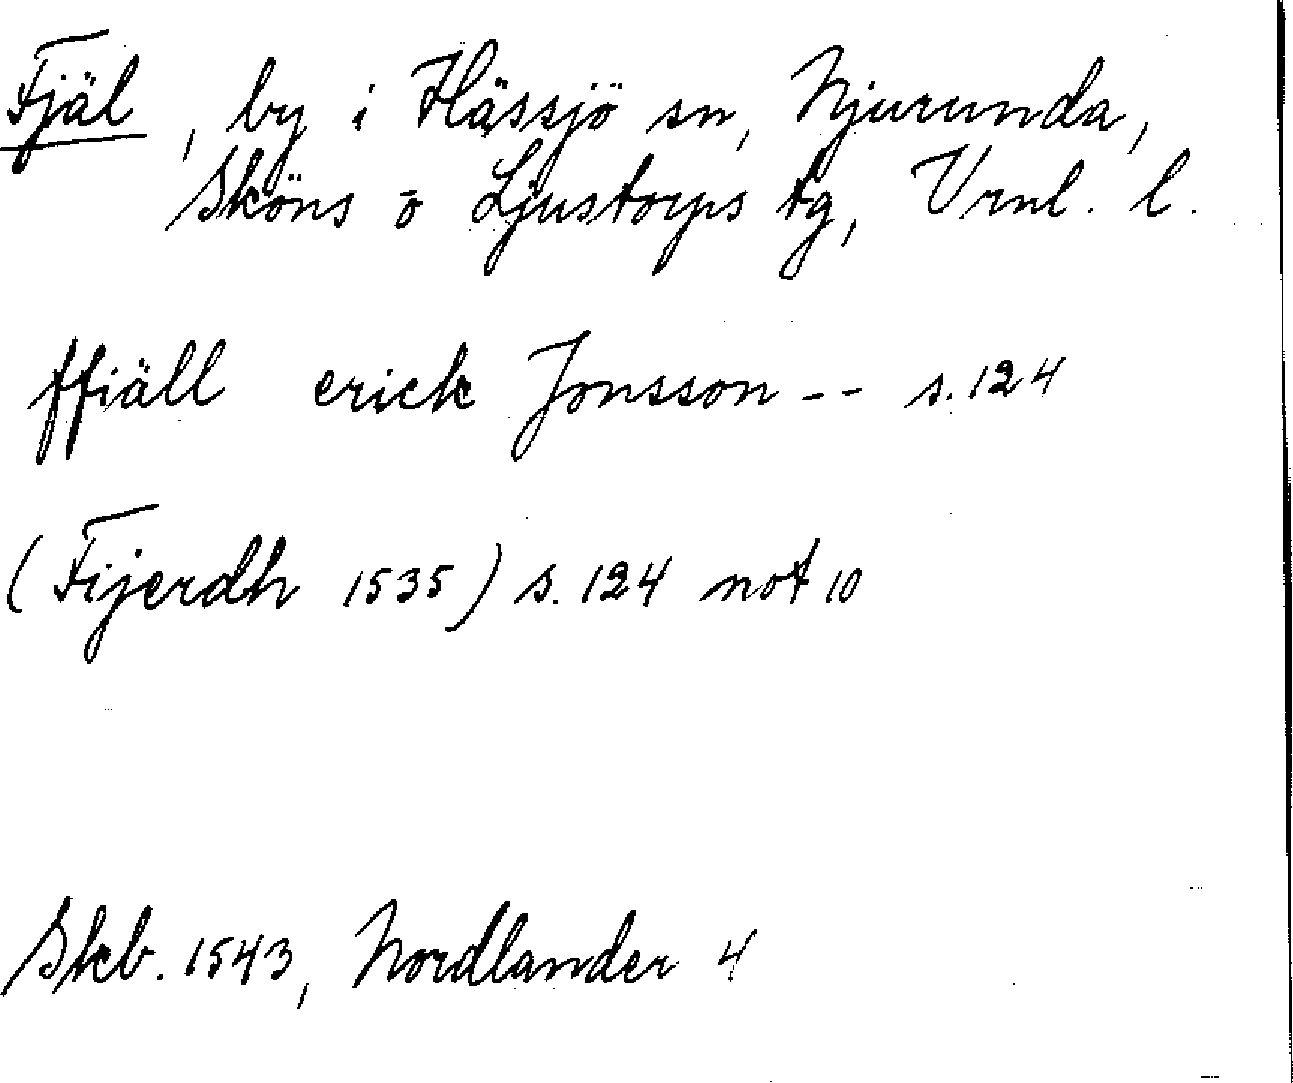 Fjäl, by i Hässjö sn, Njurunda,
Sköns o Ljustorps tg, Vrnl. l.
ffiäll erick Jonsson -- s. 124
(Fijerdh 1535) s. 124 not 10
Skb. 1543, Nordlander 4